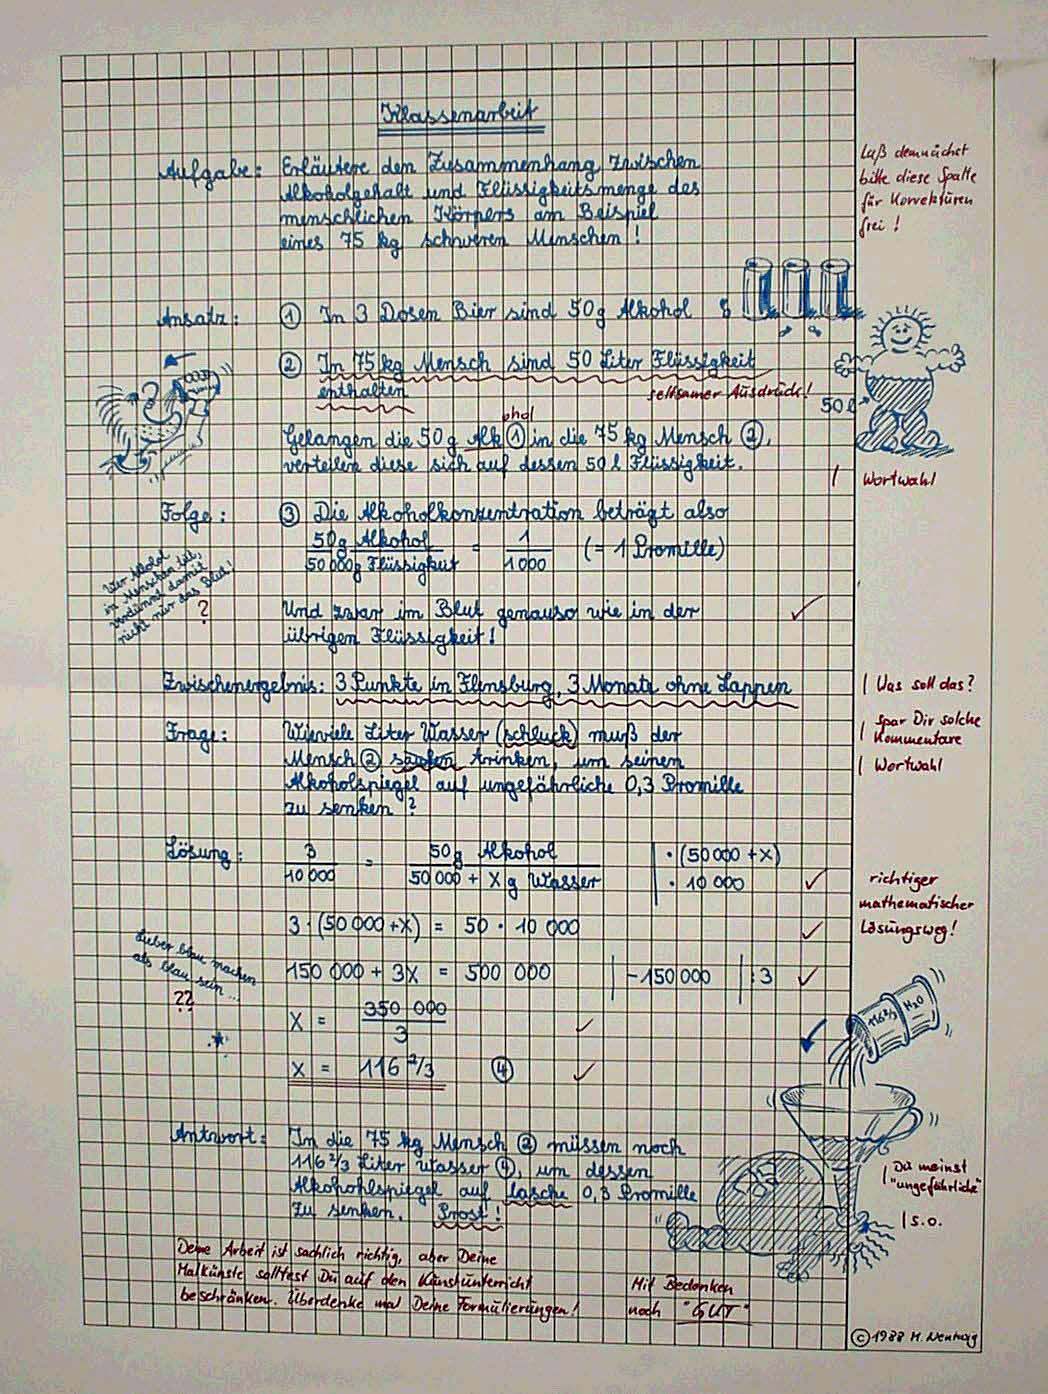 Klassenarbeit
Aufgabe: Erläutere den Zusammenhang zwischen
Alkoholgehalt und Flüssigkeitsmenge des
menschlichen Körpers am Beispiel
eines 75 kg schweren Menschen!
Laß demnächst
bitte diese Spalte
für Korrekturen
frei!
Ansatz: ① In 3 Dosen Bier sind 50g Alkohol
② In 75 kg Mensch sind 50 Liter Flüssigkeit
enthalten
seltsamer Ausdruck!
50 l
ohol
Gelangen die 50 g Alk ① in die 75 kg Mensch ②,
verteilen diese sich auf dessen 50 l Flüssigkeit.
Wortwahl
Folge: ③ Die Alkoholkonzentration beträgt also
50g Alkohol / 50 000g Flüssigkeit = 1 / 1000 (= 1 Promille)
Wer Alkohol
in Menschen
verdünnt damit
nicht nur das Blut!
?
Und zwar im Blut genauso wie in der
übrigen Flüssigkeit!
Zwischenergebnis: 3 Punkte in Flensburg, 3 Monate ohne Lappen
Was soll das?
Frage: Wieviele Liter Wasser (schluck) muß der
Mensch ② saufen trinken, um seinen
Alkoholspiegel auf ungefährliche 0,3 Promille
zu senken?
spar Dir solche
Kommentare
Wortwahl
Lösung: 3 / 10 000 = 50g Alkohol / 50 000 + X g Wasser | · (50 000 + X)
| · 10 000
richtiger
mathematischer
Lösungsweg!
3 · (50 000 + X) = 50 · 10 000
150 000 + 3X = 500 000 | -150 000 | : 3
Lieber blau machen
als blau sein...
??
X = 350 000 / 3
X = 116 2/3 ④
116 2/3 H2O
Antwort: In die 75 kg Mensch ② müssen noch
116 2/3 Liter Wasser ④, um dessen
Alkohohlspiegel auf lasche 0,3 Promille
zu senken. Prost!
Du meinst
"ungefährliche"
s.o.
Deine Arbeit ist sachlich richtig, aber Deine
Malkünste solltest Du auf den Kunstunterricht
beschränken. Überdenke mal Deine Formulierungen!
Mit Bedenken
noch "GUT"
© 1988 M.